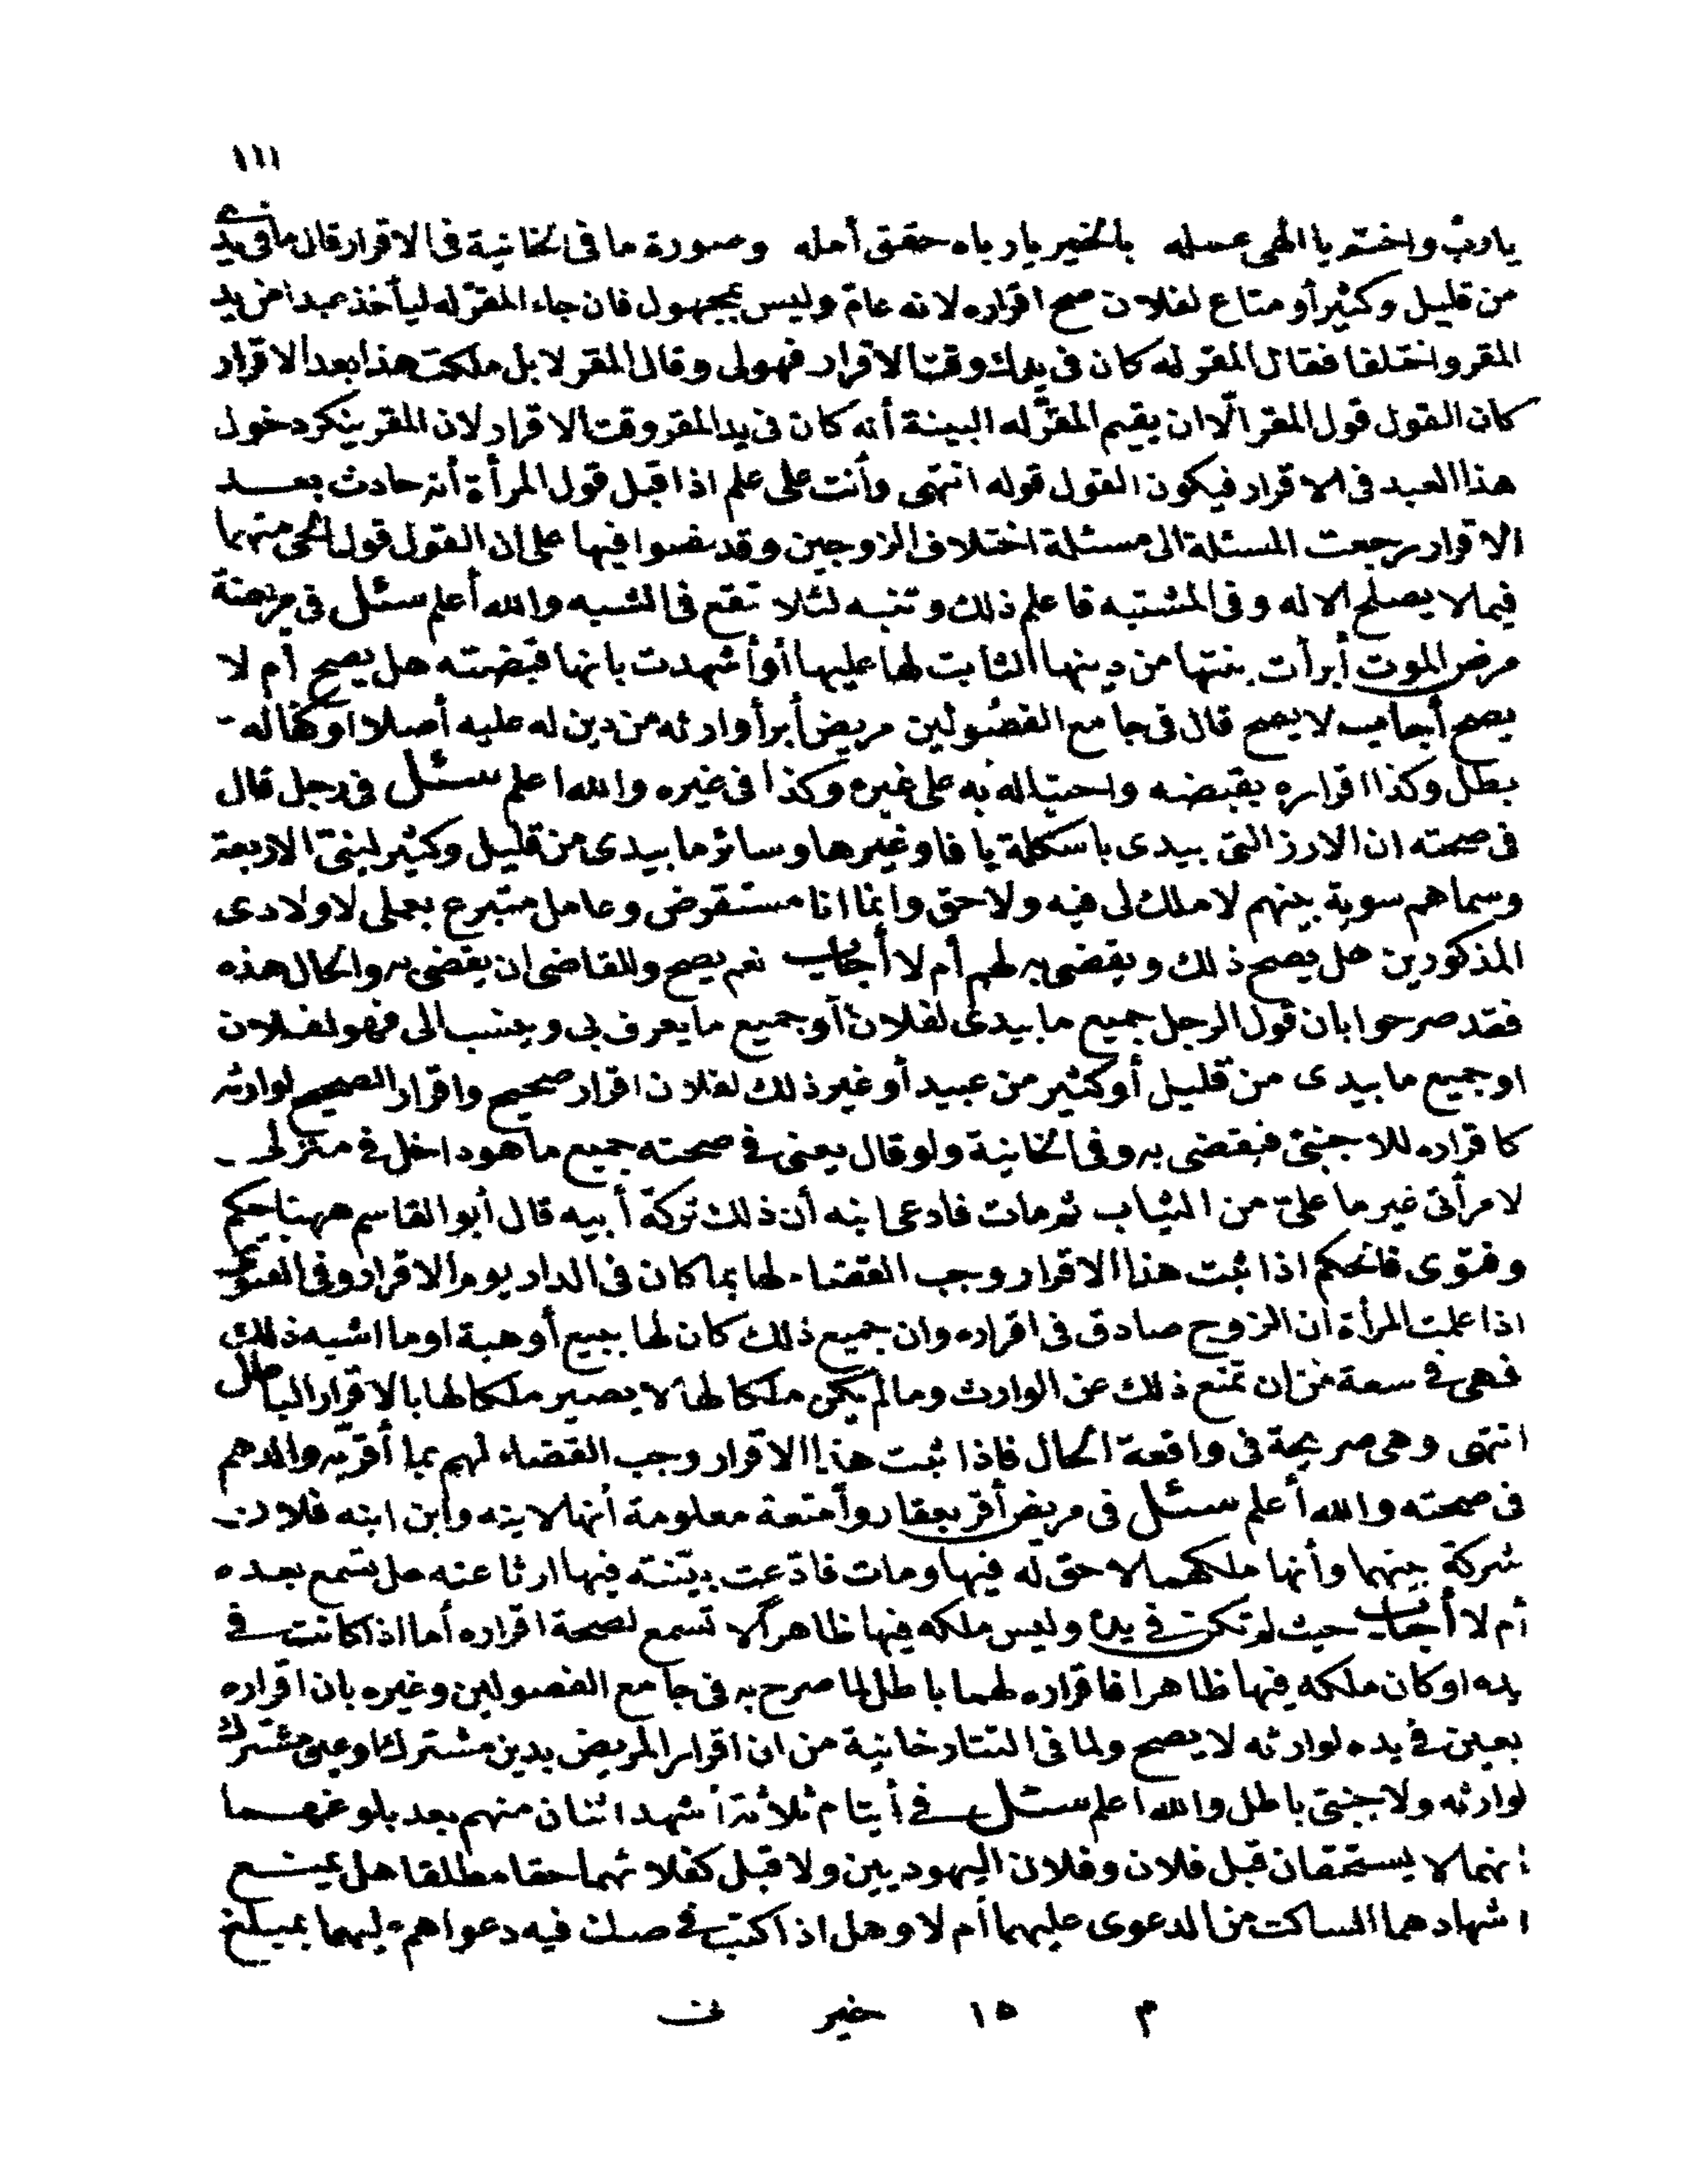 ١١١
يارب واختم يا الهى عمله بالخير يارباه حقق أمله وصورة ما فى الخانية فى الاقرار قال ما فى يدى
من قليل وكثير أو متاع لفلان صح اقراره لانه عام وليس بمجهول فان جاء المقرّ له ليأخذ عبدا من يد
المقر واختلفا فقال المقر له كان فى يدك وقت الاقرار فهولى وقال المقر لا بل ملكت هذا بعد الاقرار
كان القول قول المقر الّا ان يقيم المقرّ له البينة أنه كان فى يد المقر وقت الاقرار لان المقر ينكر دخول
هذا العبد فى الاقرار فيكون القول قوله انتهى وأنت على علم اذا قبل قول المرأة أنه حادث بعد
الاقرار رجعت المسئلة الى مسئلة اختلاف الزوجين وقد نصوا فيها على ان القول قول الحى منهما
فيما لا يصلح الا له وفى المشتبه فاعلم ذلك وتنبه لئلا تقع فى الشبه والله أعلم سئل فى مريضة
مرض الموت أبرأت بنتها من دينها الثابت لها عليها أو أشهدت بانها قبضته هل يصح أم لا
يصح أجاب لا يصح قال فى جامع الفصولين مريض أبرأ وارثه من دين له عليه أصلا او كفالة
بطل وكذا اقراره بقبضه واحتياله به على غيره وكذا فى غيره والله اعلم سئل فى رجل قال
فى صحته ان الارز التى بيدى باسكلة يافا وغيرها وسائر ما بيدى من قليل وكثير لبنىّ الاربعة
وسماهم سوية بينهم لا ملك لى فيه ولا حق وانما انا مستقرض وعامل متبرع بعملى لاولادى
المذكورين هل يصح ذلك ويقضى به لهم أم لا أجاب نعم يصح وللقاضى ان يقضى به والحال هذه
فقد صرحوا بان قول الرجل جميع ما بيدى لفلان أو جميع ما يعرف بى وينسب الى فهو لفلان
او جميع ما بيدى من قليل أو كثير من عبيد أو غير ذلك لفلان اقرار صحيح واقرار الصحيح لوارثه
كاقراره للاجنبىّ فيقضى به وفى الخانية ولو قال يعنى فى صحته جميع ما هو داخل فى منزلى
لامرأتى غير ما علىّ من الثياب ثم مات فادعى ابنه أن ذلك تركة أبيه قال أبو القاسم ههنا حكم
وفتوى فالحكم اذا ثبت هذا الاقرار وجب القضاء لها بما كان فى الدار يوم الاقرار وفى الفتوى
اذا علمت المرأة ان الزوج صادق فى اقراره وان جميع ذلك كان لها ببيع أو هبة او ما اشبه ذلك
فهى فى سعة من ان تمنع ذلك عن الوارث وما لم يكن ملكا لها لا يصير ملكا لها بالاقرار الباطل
انتهى وهى صريحة فى واقعة الحال فاذا ثبت هذا الاقرار وجب القضاء لهم بما أقرّ به والدهم
فى صحته والله أعلم سئل فى مريض أقر بعقار وأمتعة معلومة أنها لابنه وابن ابنه فلان
شركة بينهما وأنها ملكهما لا حق له فيها ومات فادّعت بنته فيها ارثا عنه هل تسمع بعده
أم لا أجاب حيث لم تكن فى يده وليس ملكه فيها ظاهرا لا تسمع لصحة اقراره أما اذا كانت فى
يده او كان ملكه فيها ظاهرا فاقراره لهما باطل لما صرح به فى جامع الفصولين وغيره بان اقراره
بعين فى يده لوارثه لا يصح ولما فى التتارخانية من ان اقرار المريض بدين مشترك او عين مشترك
لوارثه ولاجنبىّ باطل والله اعلم سئل فى أيتام ثلاثة أشهد اثنان منهم بعد بلوغهما
انهما لا يستحقان قبل فلان وفلان اليهوديين ولا قبل كفلائهما حقا مطلقا هل يمنع
اشهادهما الساكت من الدعوى عليهما أم لا وهل اذا كتب فى صك فيه دعواهم عليهما بمبلغ
م ١٥ خير نى